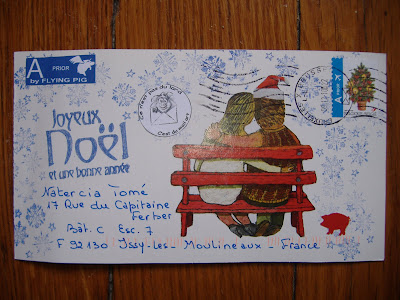 A PRIOR
by FLYING PIG
Joyeux
Noël
et une bonne année
A PRIOR
Natercia Tomé
17 Rue du Capitaine
Ferber
Bât. C Esc. 7
F 92130 Issy-les-Moulineaux - France